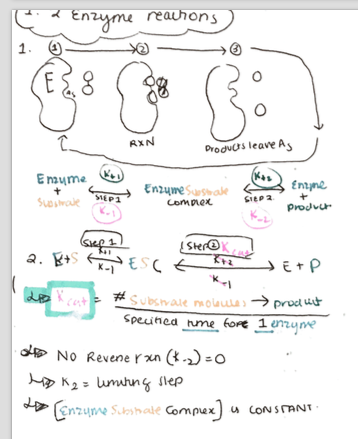 1. 2 Enzyme reactions
1. ① → ② → ③
E
RXN
Products leave As
K+1
K+2
Enzyme + Substrate
STEP 1
Enzyme Substrate complex
STEP 2
Enzyme + product
K-1
K-2
Step 1
Step 2 Kcat
2. E+S
K+1
K-1
ESC
K+2
K-1
E + P
Kcat = # Substrate molecules → product
specified time for 1 enzyme
No Reverse rxn (K-2) = 0
K2 = limiting step
[Enzyme Substrate Complex] is CONSTANT.